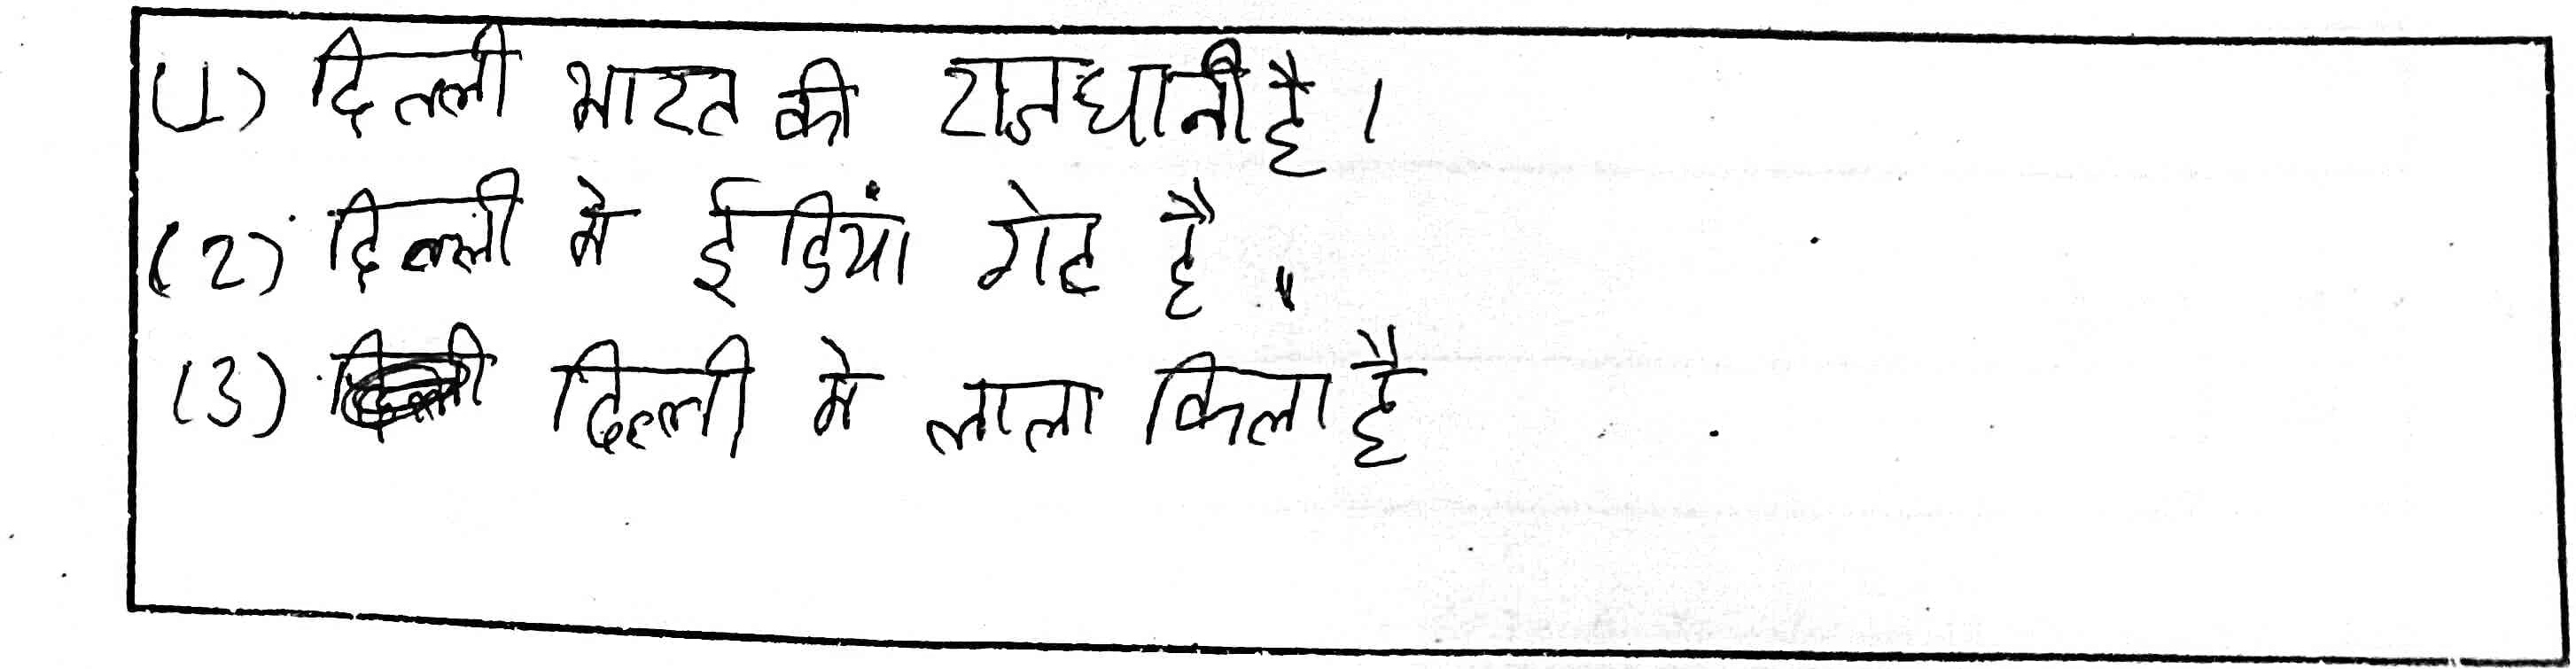 (1) दिल्ली भारत की राजधानी है ।
(2) दिल्ली मे ईडियां गेट है ॥
(3) दिल्ली मे लाला किला है